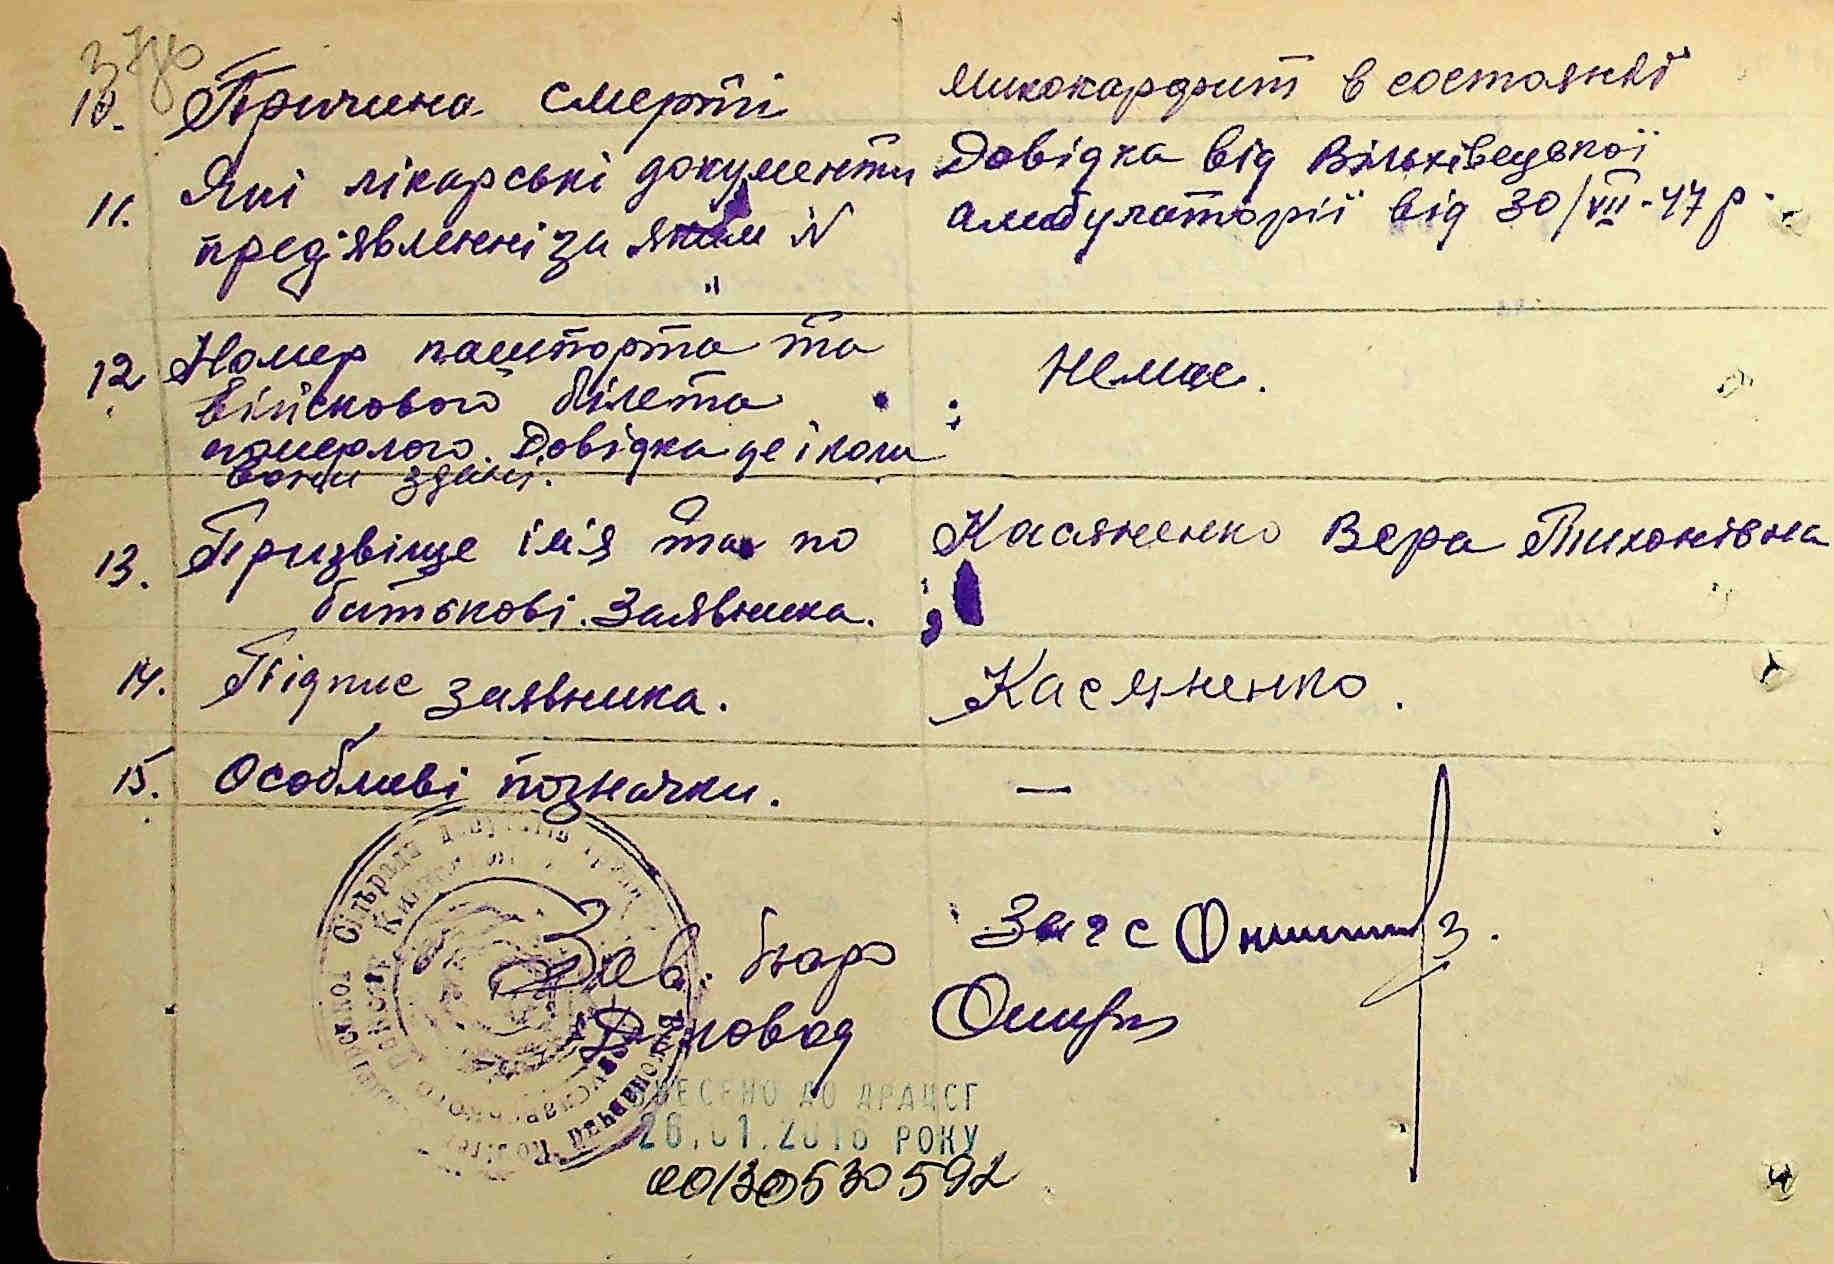 10. Причина смерті микокардит в состоянії
11. Які лікарські документи Довідка від Вільхівецької
пред'явленні за яким № амбулаторії від 30/VII-47 р.
12 Номер пашпорта та Немає.
військового білета
померлого. Довідка де і коли
вони здані.
13. Призвіще ім'я та по Касяненко Вера Тихонівна
батькові. Заявника.
14. Підпис заявника. Касяненко.
15. Особливі позначки. —
Зав. бюро Загс
Діловод
ВНЕСЕНО ДО ДРАЦСГ
26.01.2016 РОКУ
00130530592